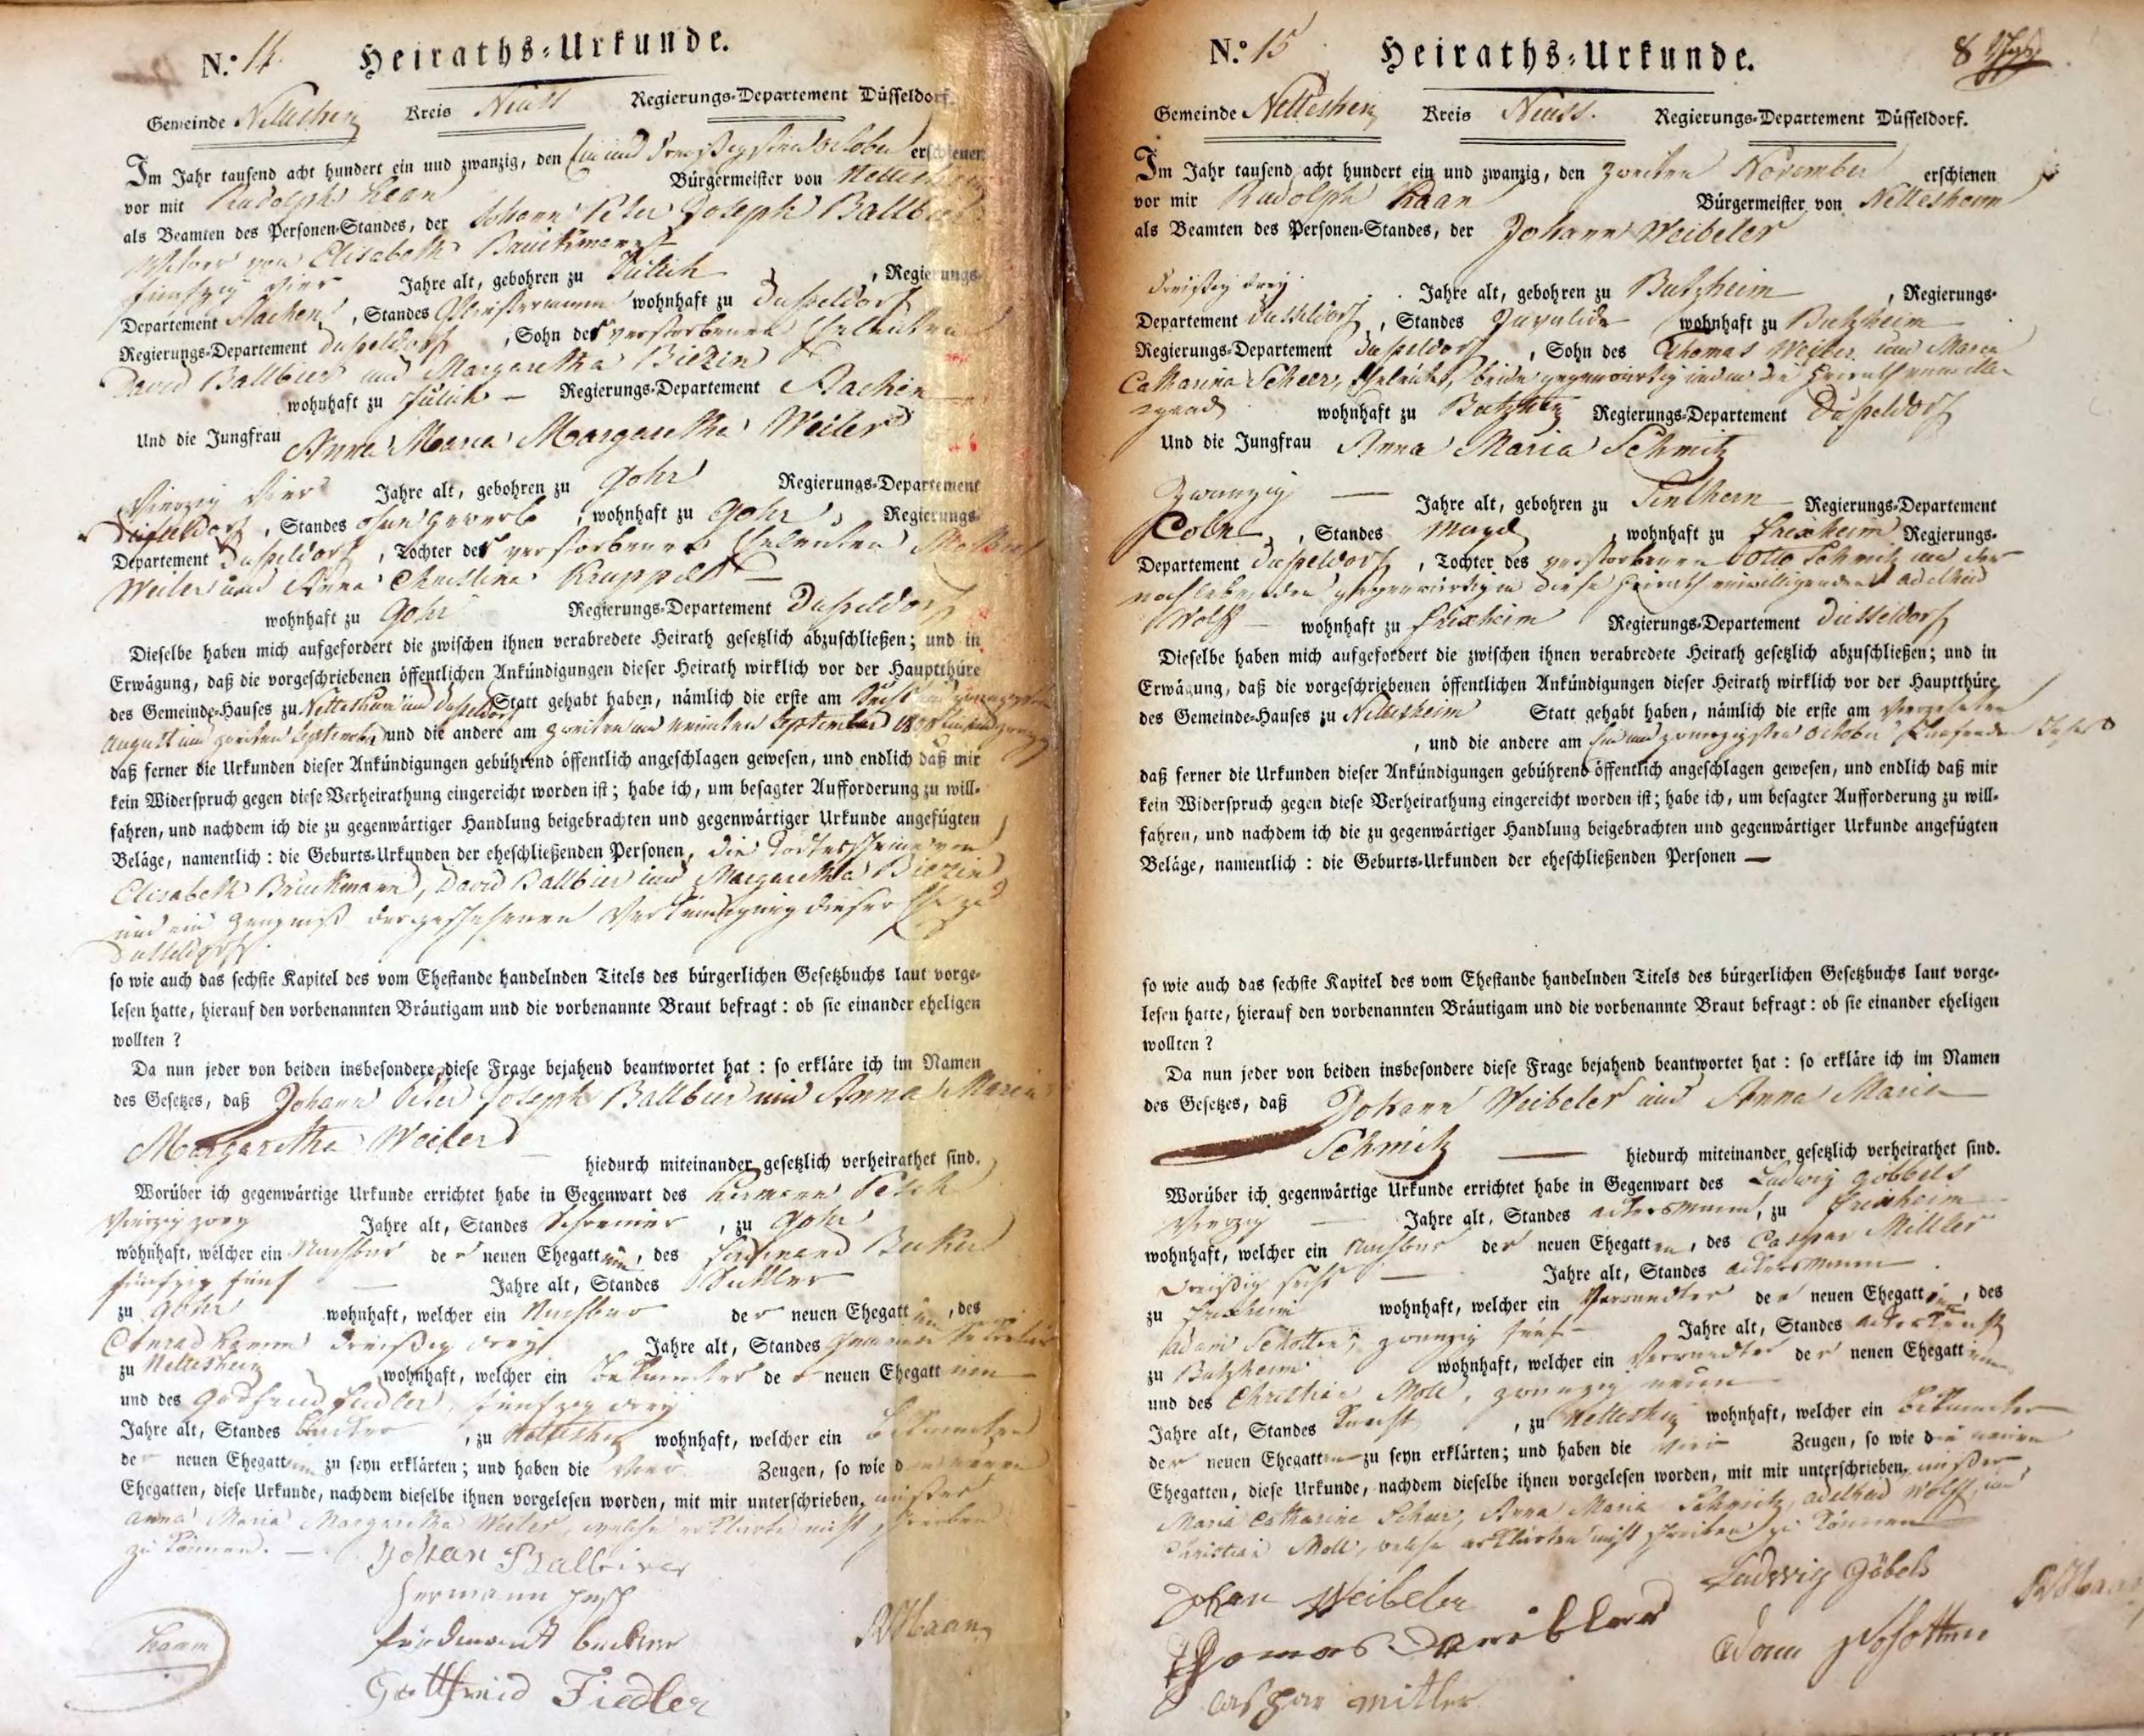 N.º 14. Heiraths-Urkunde.
Gemeinde Nettesheim Kreis Neuss Regierungs-Departement Düsseldorf.
Im Jahr tausend acht hundert ein und zwanzig, den Ein und dreißigsten October erschienen
vor mir Rudolph Haan Bürgermeister von Nettesheim
als Beamten des Personen-Standes, der Johann Peter Joseph Ballbier
Witwer von Elisabeth Brückmann
fünfzig vier Jahre alt, gebohren zu Jülich, Regierungs-
Departement Aachen, Standes wohnhaft zu Dusseldorf
Regierungs-Departement Dusseldorf, Sohn der verstorbenen Eheleuten
David Ballbier und Margaretha Biezin
wohnhaft zu Jülich — Regierungs-Departement Aachen
Und die Jungfrau Anna Maria Margaretha Weiler
Vierzig vier Jahre alt, gebohren zu Gohr Regierungs-Departement
Düsseldorf, Standes ohne Gewerb, wohnhaft zu Gohr, Regierungs-
Departement Dusseldorf, Tochter der verstorbenen Eheleuten
Weiler und Anna Christina Kruppel
wohnhaft zu Gohr Regierungs-Departement Dusseldorf
Dieselbe haben mich aufgefordert die zwischen ihnen verabredete Heirath gesetzlich abzuschließen; und in
Erwägung, daß die vorgeschriebenen öffentlichen Ankündigungen dieser Heirath wirklich vor der Hauptthüre
des Gemeinde-Hauses zu Nettesheim und Dusseldorf Statt gehabt haben, nämlich die erste am Sechs und zwanzigsten
August und zweiten September und die andere am zweiten und neunten September
daß ferner die Urkunden dieser Ankündigungen gebührend öffentlich angeschlagen gewesen, und endlich daß mir
kein Widerspruch gegen diese Verheirathung eingereicht worden ist; habe ich, um besagter Aufforderung zu will-
fahren, und nachdem ich die zu gegenwärtiger Handlung beigebrachten und gegenwärtiger Urkunde angefügten
Beläge, namentlich: die Geburts-Urkunden der eheschließenden Personen, die Todtesscheine von
Elisabeth Brückmann, David Ballbier und Margaretha Biezin
und ein Zeugniß der geschehenen Verkündigung dieser Ehe zu
Dusseldorf
so wie auch das sechste Kapitel des vom Ehestande handelnden Titels des bürgerlichen Gesetzbuchs laut vorge-
lesen hatte, hierauf den vorbenannten Bräutigam und die vorbenannte Braut befragt: ob sie einander eheligen
wollten?
Da nun jeder von beiden insbesondere diese Frage bejahend beantwortet hat: so erkläre ich im Namen
des Gesetzes, daß Johann Peter Joseph Ballbier und Anna Maria
Margaretha Weiler —
hiedurch miteinander gesetzlich verheirathet sind.
Worüber ich gegenwärtige Urkunde errichtet habe in Gegenwart des Hermann Pesch
Vierzig zwey Jahre alt, Standes Schreiner, zu Gohr
wohnhaft, welcher ein Nachbar der neuen Ehegattin, des Ferdinand Becker
fünfzig fünf — Jahre alt, Standes Sattler
zu Gohr wohnhaft, welcher ein Nachbar der neuen Ehegattin, des
Conrad Hamm dreißig drey Jahre alt, Standes
zu Nettesheim wohnhaft, welcher ein Bekannter der neuen Ehegattinn
und des Godfried Fiedler, fünfzig drey
Jahre alt, Standes, zu Nettesheim wohnhaft, welcher ein Bekannter
der neuen Ehegattin zu seyn erklärten; und haben die vier Zeugen, so wie die neuen
Ehegatten, diese Urkunde, nachdem dieselbe ihnen vorgelesen worden, mit mir unterschrieben, außer
Anna Maria Margaretha Weiler, welche erklärte nicht schreiben
zu können. —
Johan Ballbier
Hermann Pesch
ferdinandt becker
RHaan
Hamm
Gottfried Fiedler
N.º 15 Heiraths-Urkunde. 8
Gemeinde Nettesheim Kreis Neuss. Regierungs-Departement Düsseldorf.
Im Jahr tausend acht hundert ein und zwanzig, den zweiten November erschienen
vor mir Rudolph Haan Bürgermeister von Nettesheim
als Beamten des Personen-Standes, der Johann Weibeler
dreißig drey Jahre alt, gebohren zu Butzheim, Regierungs-
Departement Dusseldorf, Standes Invalide wohnhaft zu Butzheim
Regierungs-Departement Dusseldorf, Sohn des Thomas Weibler und Maria
Catharina Scheer, Eheleute, beide gegenwärtig und in die Heirath einwilli-
gend wohnhaft zu Butzheim Regierungs-Departement Düsseldorf
Und die Jungfrau Anna Maria Schmitz
Zwanzig — Jahre alt, gebohren zu Sinthern Regierungs-Departement
Coln, Standes Magd, wohnhaft zu Frixheim Regierungs-
Departement Dusseldorf, Tochter des verstorbenen Otto Schmitz und der
noch lebenden gegenwärtig in diese Heirath einwilligenden Adelheid
Wolff — wohnhaft zu Frixheim Regierungs-Departement Düsseldorf
Dieselbe haben mich aufgefordert die zwischen ihnen verabredete Heirath gesetzlich abzuschließen; und in
Erwägung, daß die vorgeschriebenen öffentlichen Ankündigungen dieser Heirath wirklich vor der Hauptthüre
des Gemeinde-Hauses zu Nettesheim Statt gehabt haben, nämlich die erste am vierzehnten
, und die andere am Ein und zwanzigsten October laufenden Jahrs
daß ferner die Urkunden dieser Ankündigungen gebührend öffentlich angeschlagen gewesen, und endlich daß mir
kein Widerspruch gegen diese Verheirathung eingereicht worden ist; habe ich, um besagter Aufforderung zu will-
fahren, und nachdem ich die zu gegenwärtiger Handlung beigebrachten und gegenwärtiger Urkunde angefügten
Beläge, namentlich: die Geburts-Urkunden der eheschließenden Personen —
so wie auch das sechste Kapitel des vom Ehestande handelnden Titels des bürgerlichen Gesetzbuchs laut vorge-
lesen hatte, hierauf den vorbenannten Bräutigam und die vorbenannte Braut befragt: ob sie einander eheligen
wollten?
Da nun jeder von beiden insbesondere diese Frage bejahend beantwortet hat: so erkläre ich im Namen
des Gesetzes, daß Johann Weibeler und Anna Maria
Schmitz — hiedurch miteinander gesetzlich verheirathet sind.
Worüber ich gegenwärtige Urkunde errichtet habe in Gegenwart des Ludwig Göbbels
Vierzig — Jahre alt, Standes Ackersmann, zu Frixheim
wohnhaft, welcher ein Nachbar der neuen Ehegatten, des Caspar Mittler
dreißig sechs — Jahre alt, Standes Ackersmann
zu Frixheim wohnhaft, welcher ein Verwandter der neuen Ehegattin, des
Adam Schotten, zwanzig fünf — Jahre alt, Standes Ackersknecht
zu Butzheim wohnhaft, welcher ein Verwandter der neuen Ehegattin
und des Christian Moll, zwanzig neun
Jahre alt, Standes Knecht, zu Nettesheim wohnhaft, welcher ein Bekannter
der neuen Ehegatten zu seyn erklärten; und haben die vier Zeugen, so wie die neuen
Ehegatten, diese Urkunde, nachdem dieselbe ihnen vorgelesen worden, mit mir unterschrieben, außer
Maria Catharina Scheer, Anna Maria Schmitz, Adelheid Wolff, und
Christian Moll, welche erklärten nicht schreiben zu können
Johan Weibeler
Ludwig Göbels
RHaan
Thomas Weibler
Adam Schotten
Caspar Mitler